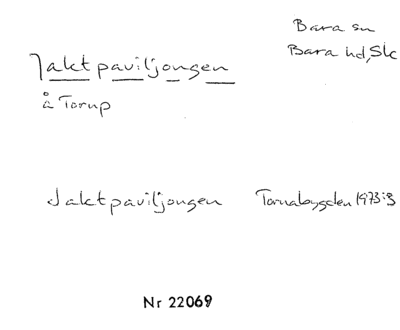 Bara sn
Bara hd, Sk
Jaktpaviljongen
å Torup
Jaktpaviljongen Tornabygden 1973:3
Nr 22069